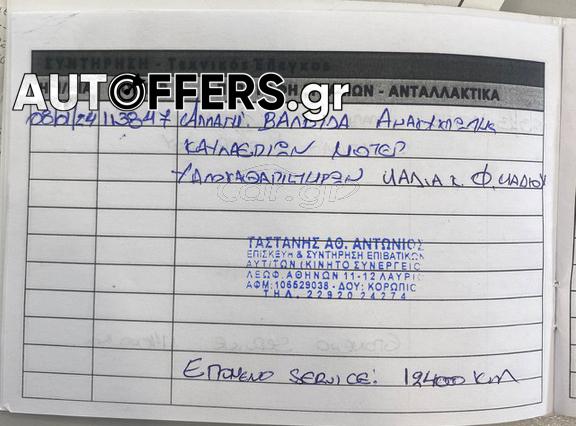 ΣΥΝΤΗΡΗΣΗ - Τεχνικός Έλεγχος
AUTOFFERS.gr
- ΑΝΤΑΛΛΑΚΤΙΚΑ
08/01/24 113847 ΑΛΛΑΓΗ ΒΑΛΒΙΔΑ
ΜΟΤΕΡ
ΥΑΛΟΚΑΘΑΡΙΣΤΗΡΩΝ
car.gr
ΤΑΣΤΑΝΗΣ ΑΘ. ΑΝΤΩΝΙΟΣ
ΕΠΙΣΚΕΥΗ & ΣΥΝΤΗΡΗΣΗ ΕΠΙΒΑΤΙΚΩΝ
ΑΥΤ/ΤΩΝ (ΚΙΝΗΤΟ ΣΥΝΕΡΓΕΙΟ
ΛΕΩΦ. ΑΘΗΝΩΝ 11-12 ΛΑΥΡΙΟ
ΑΦΜ: 106529038 - ΔΟΥ: ΚΟΡΩΠΙΟ
ΤΗΛ. 22920 24274
ΕΠΟΜΕΝΟ SERVICE: 12400 KM